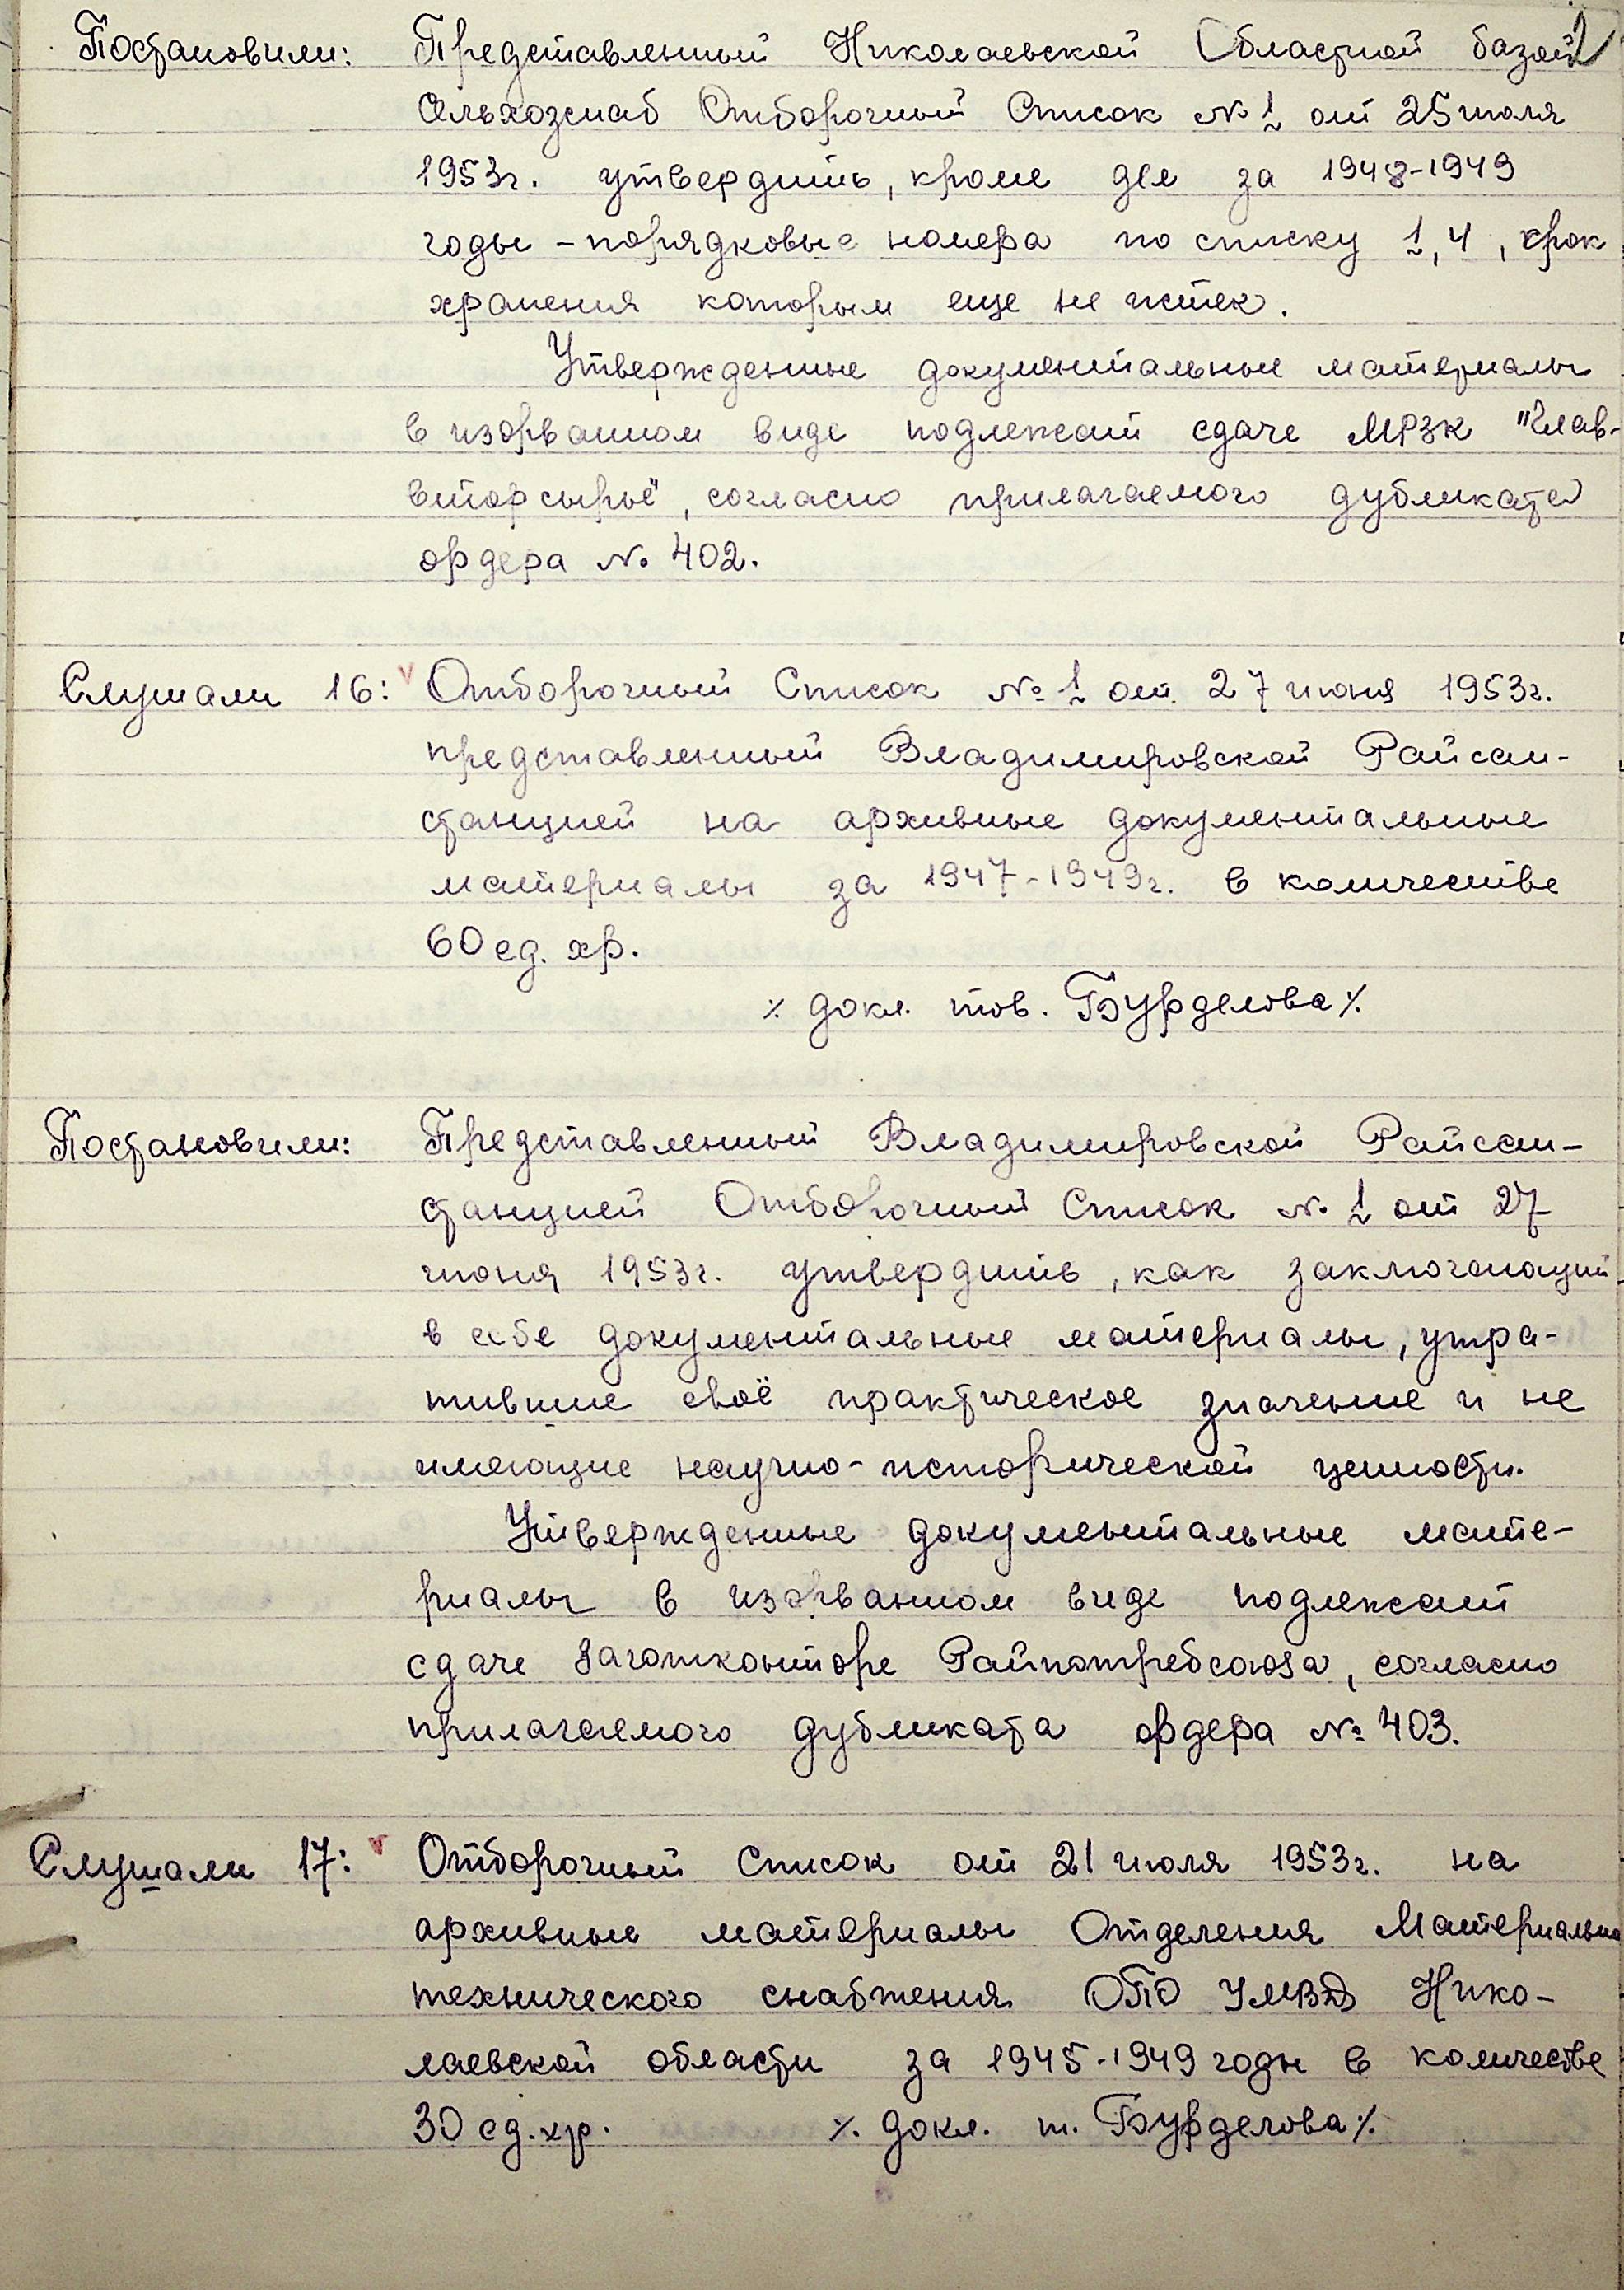 Постановили: Представленный Николаевской Областной базой
Сельхозснаб Отборочный Список № 1 от 25 июля
1953г. утвердить, кроме дел за 1948-1949
годы - порядковые номера по списку 1, 4, срок
хранения которым еще не истек.
Утвержденные документальные материалы
в изорванном виде подлежат сдаче МРЗК "Глав-
вторсырьё", согласно прилагаемого дубликата
ордера № 402.
Слушали 16: Отборочный Список № 1 от 27 июня 1953г.
представленный Владимировской Райсан-
станцией на архивные документальные
материалы за 1947-1949г. в количестве
60 ед. хр.
٪ докл. тов. Бурделова ٪
Постановили: Представленный Владимировской Райсан-
станцией Отборочный Список № 1 от 27
июня 1953г. утвердить, как заключающий
в себе документальные материалы, утра-
тившие своё практическое значение и не
имеющие научно-исторической ценности.
Утвержденные документальные мате-
риалы в изорванном виде подлежат
сдаче Заготконторе Райпотребсоюза, согласно
прилагаемого дубликата ордера № 403.
Слушали 17: Отборочный Список от 21 июля 1953г. на
архивные материалы Отделения Материально
технического снабжения ОПО УМВД Нико-
лаевской области за 1945-1949 годы в количестве
30 ед. хр. ٪ докл. т. Бурделова ٪